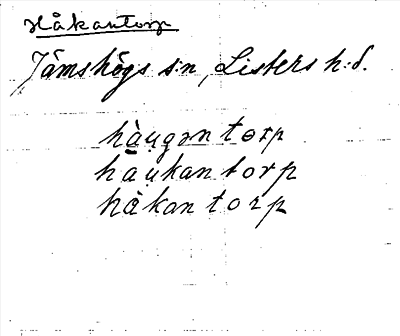 Håkantorp
Jämshögs s:n, Listers h:d.
hàu̯gən torp
hàu̯kan torp
håkan torp